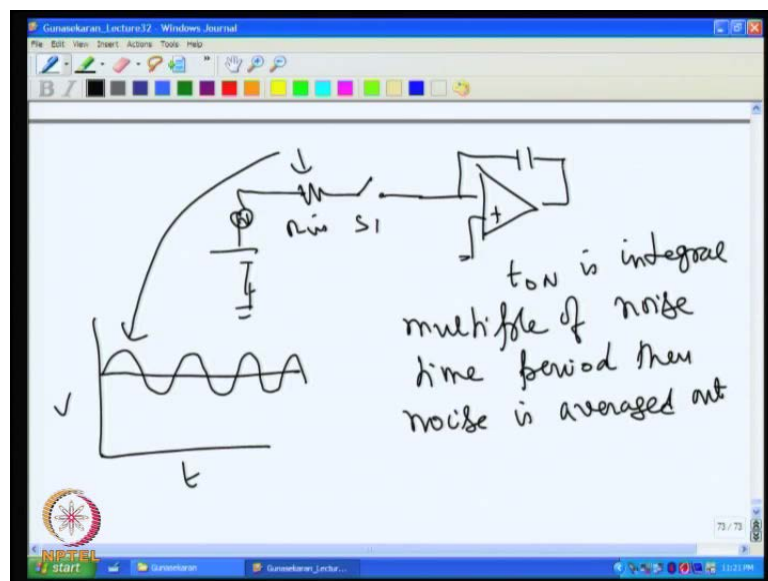 Gunasekaran_Lecture32 - Windows Journal
File Edit View Insert Actions Tools Help
B I
Rin S1
+
tON is integral
multiple of noise
time period then
noise is averaged out
V
t
73 / 73
NPTEL
start
Gunasekaran
Gunasekaran_Lectur...
11:21 PM